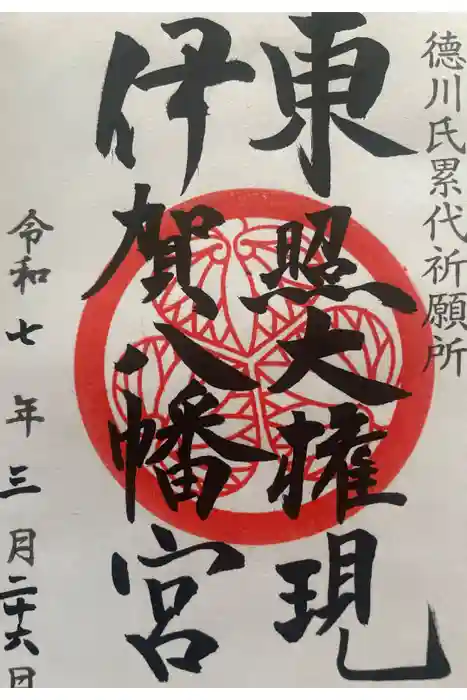 徳川氏累代祈願所
東照大権現
伊賀八幡宮
令和七年三月二十六日